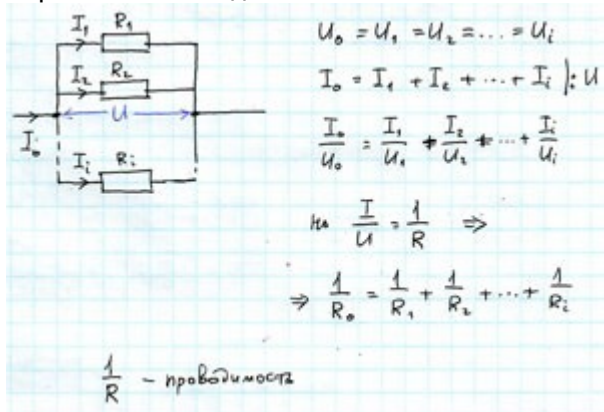 I₁ R₁
I₂ R₂
U
I₀
Iᵢ Rᵢ
U₀ = U₁ = U₂ = ... = Uᵢ
I₀ = I₁ + I₂ + ... + Iᵢ |: U
I₀/U₀ = I₁/U₁ + I₂/U₂ + ... + Iᵢ/Uᵢ
но I/U = 1/R ⇒
⇒ 1/R₀ = 1/R₁ + 1/R₂ + ... + 1/Rᵢ
1/R - проводимость